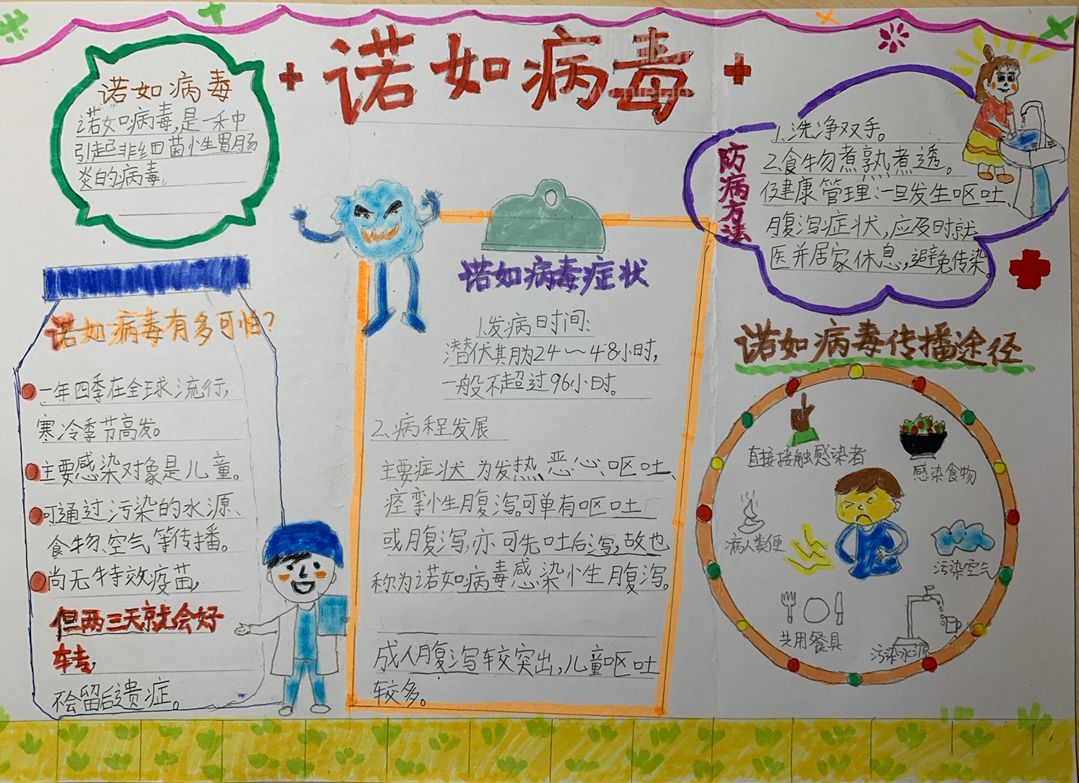 诺如病毒
诺如病毒
诺如病毒,是一种
引起非细菌性胃肠
炎的病毒。
诺如病毒有多可怕?
一年四季在全球流行,
寒冷季节高发。
主要感染对象是儿童。
可通过污染的水源、
食物、空气等传播。
尚无特效疫苗,
但两三天就会好
转,
不会留后遗症。
诺如病毒症状
1.发病时间:
潜伏期为24~48小时,
一般不超过96小时。
2.病程发展
主要症状为发热恶心呕吐、
痉挛性腹泻。可单有呕吐
或腹泻,亦可先吐后泻,故也
称为诺如病毒感染性腹泻。
成人腹泻较突出,儿童呕吐
较多。
防病方法
1.洗净双手。
2.食物煮熟煮透。
健康管理:一旦发生呕吐
腹泻症状,应及时就
医并居家休息,避免传染。
诺如病毒传播途径
直接接触感染者
感染食物
病人粪便
污染空气
共用餐具
污染水源